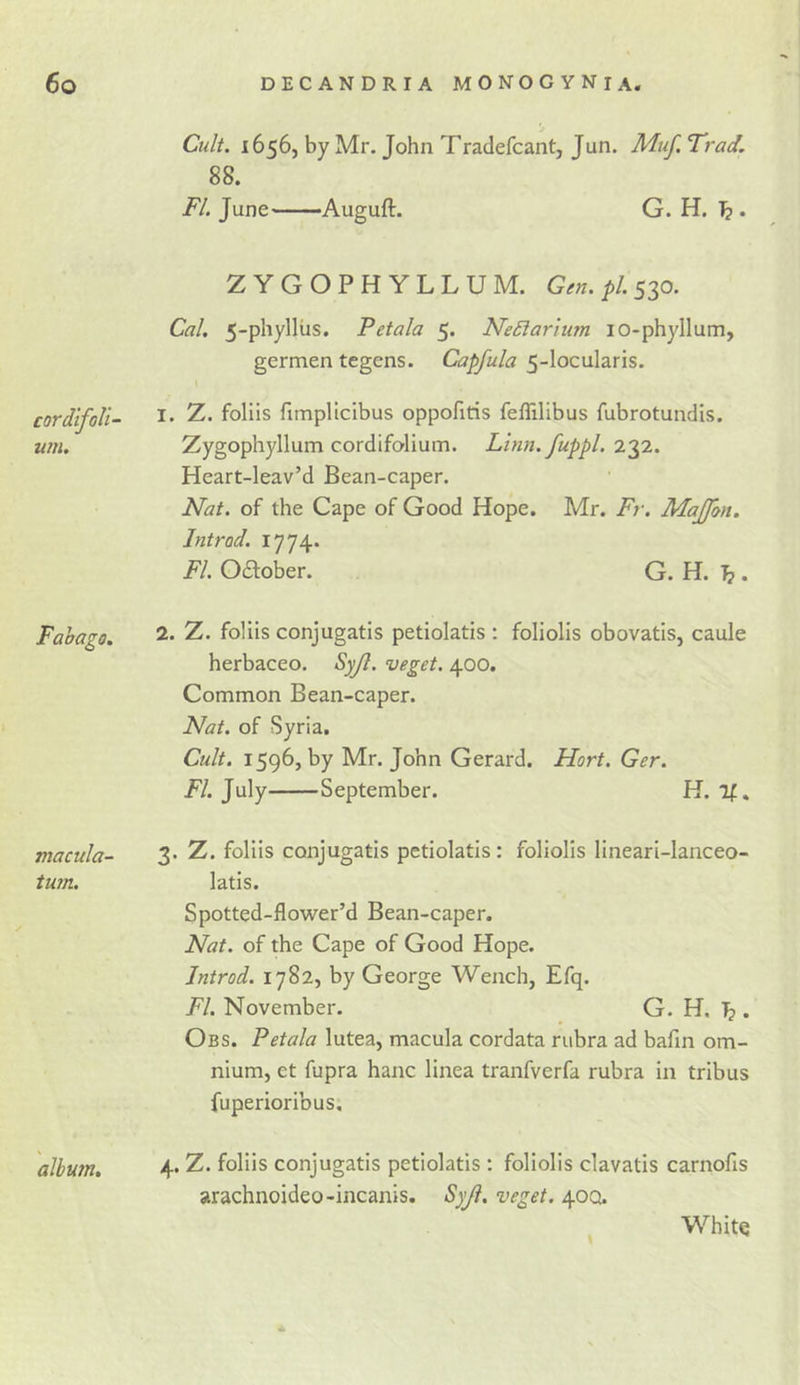 60 DECANDRIA MONOGYNIA.
Cult. 1656, by Mr. John Tradeſcant, Jun. Muſ. Trad.
88.
Fl. June——Auguſt. G. H. ♄.
ZYGOPHYLLUM. Gen. pl. 530.
Cal. 5-phyllus. Petala 5. Nectarium 10-phyllum,
germen tegens. Capſula 5-locularis.
cordifoli- 1. Z. foliis ſimplicibus oppoſitis ſeſſilibus ſubrotundis.
um. Zygophyllum cordifolium. Linn. ſuppl. 232.
Heart-leav'd Bean-caper.
Nat. of the Cape of Good Hope. Mr. Fr. Maſſon.
Introd. 1774.
Fl. October. G. H. ♄.
Fabago. 2. Z. foliis conjugatis petiolatis : foliolis obovatis, caule
herbaceo. Syſt. veget. 400.
Common Bean-caper.
Nat. of Syria.
Cult. 1596, by Mr. John Gerard. Hort. Ger.
Fl. July——September. H. ♃.
macula- 3. Z. foliis conjugatis petiolatis : foliolis lineari-lanceo-
tum. latis.
Spotted-flower'd Bean-caper.
Nat. of the Cape of Good Hope.
Introd. 1782, by George Wench, Eſq.
Fl. November. G. H. ♄.
OBS. Petala lutea, macula cordata rubra ad baſin om-
nium, et ſupra hanc linea tranſverſa rubra in tribus
ſuperioribus.
album. 4. Z. foliis conjugatis petiolatis : foliolis clavatis carnoſis
arachnoideo-incanis. Syſt. veget. 400.
White